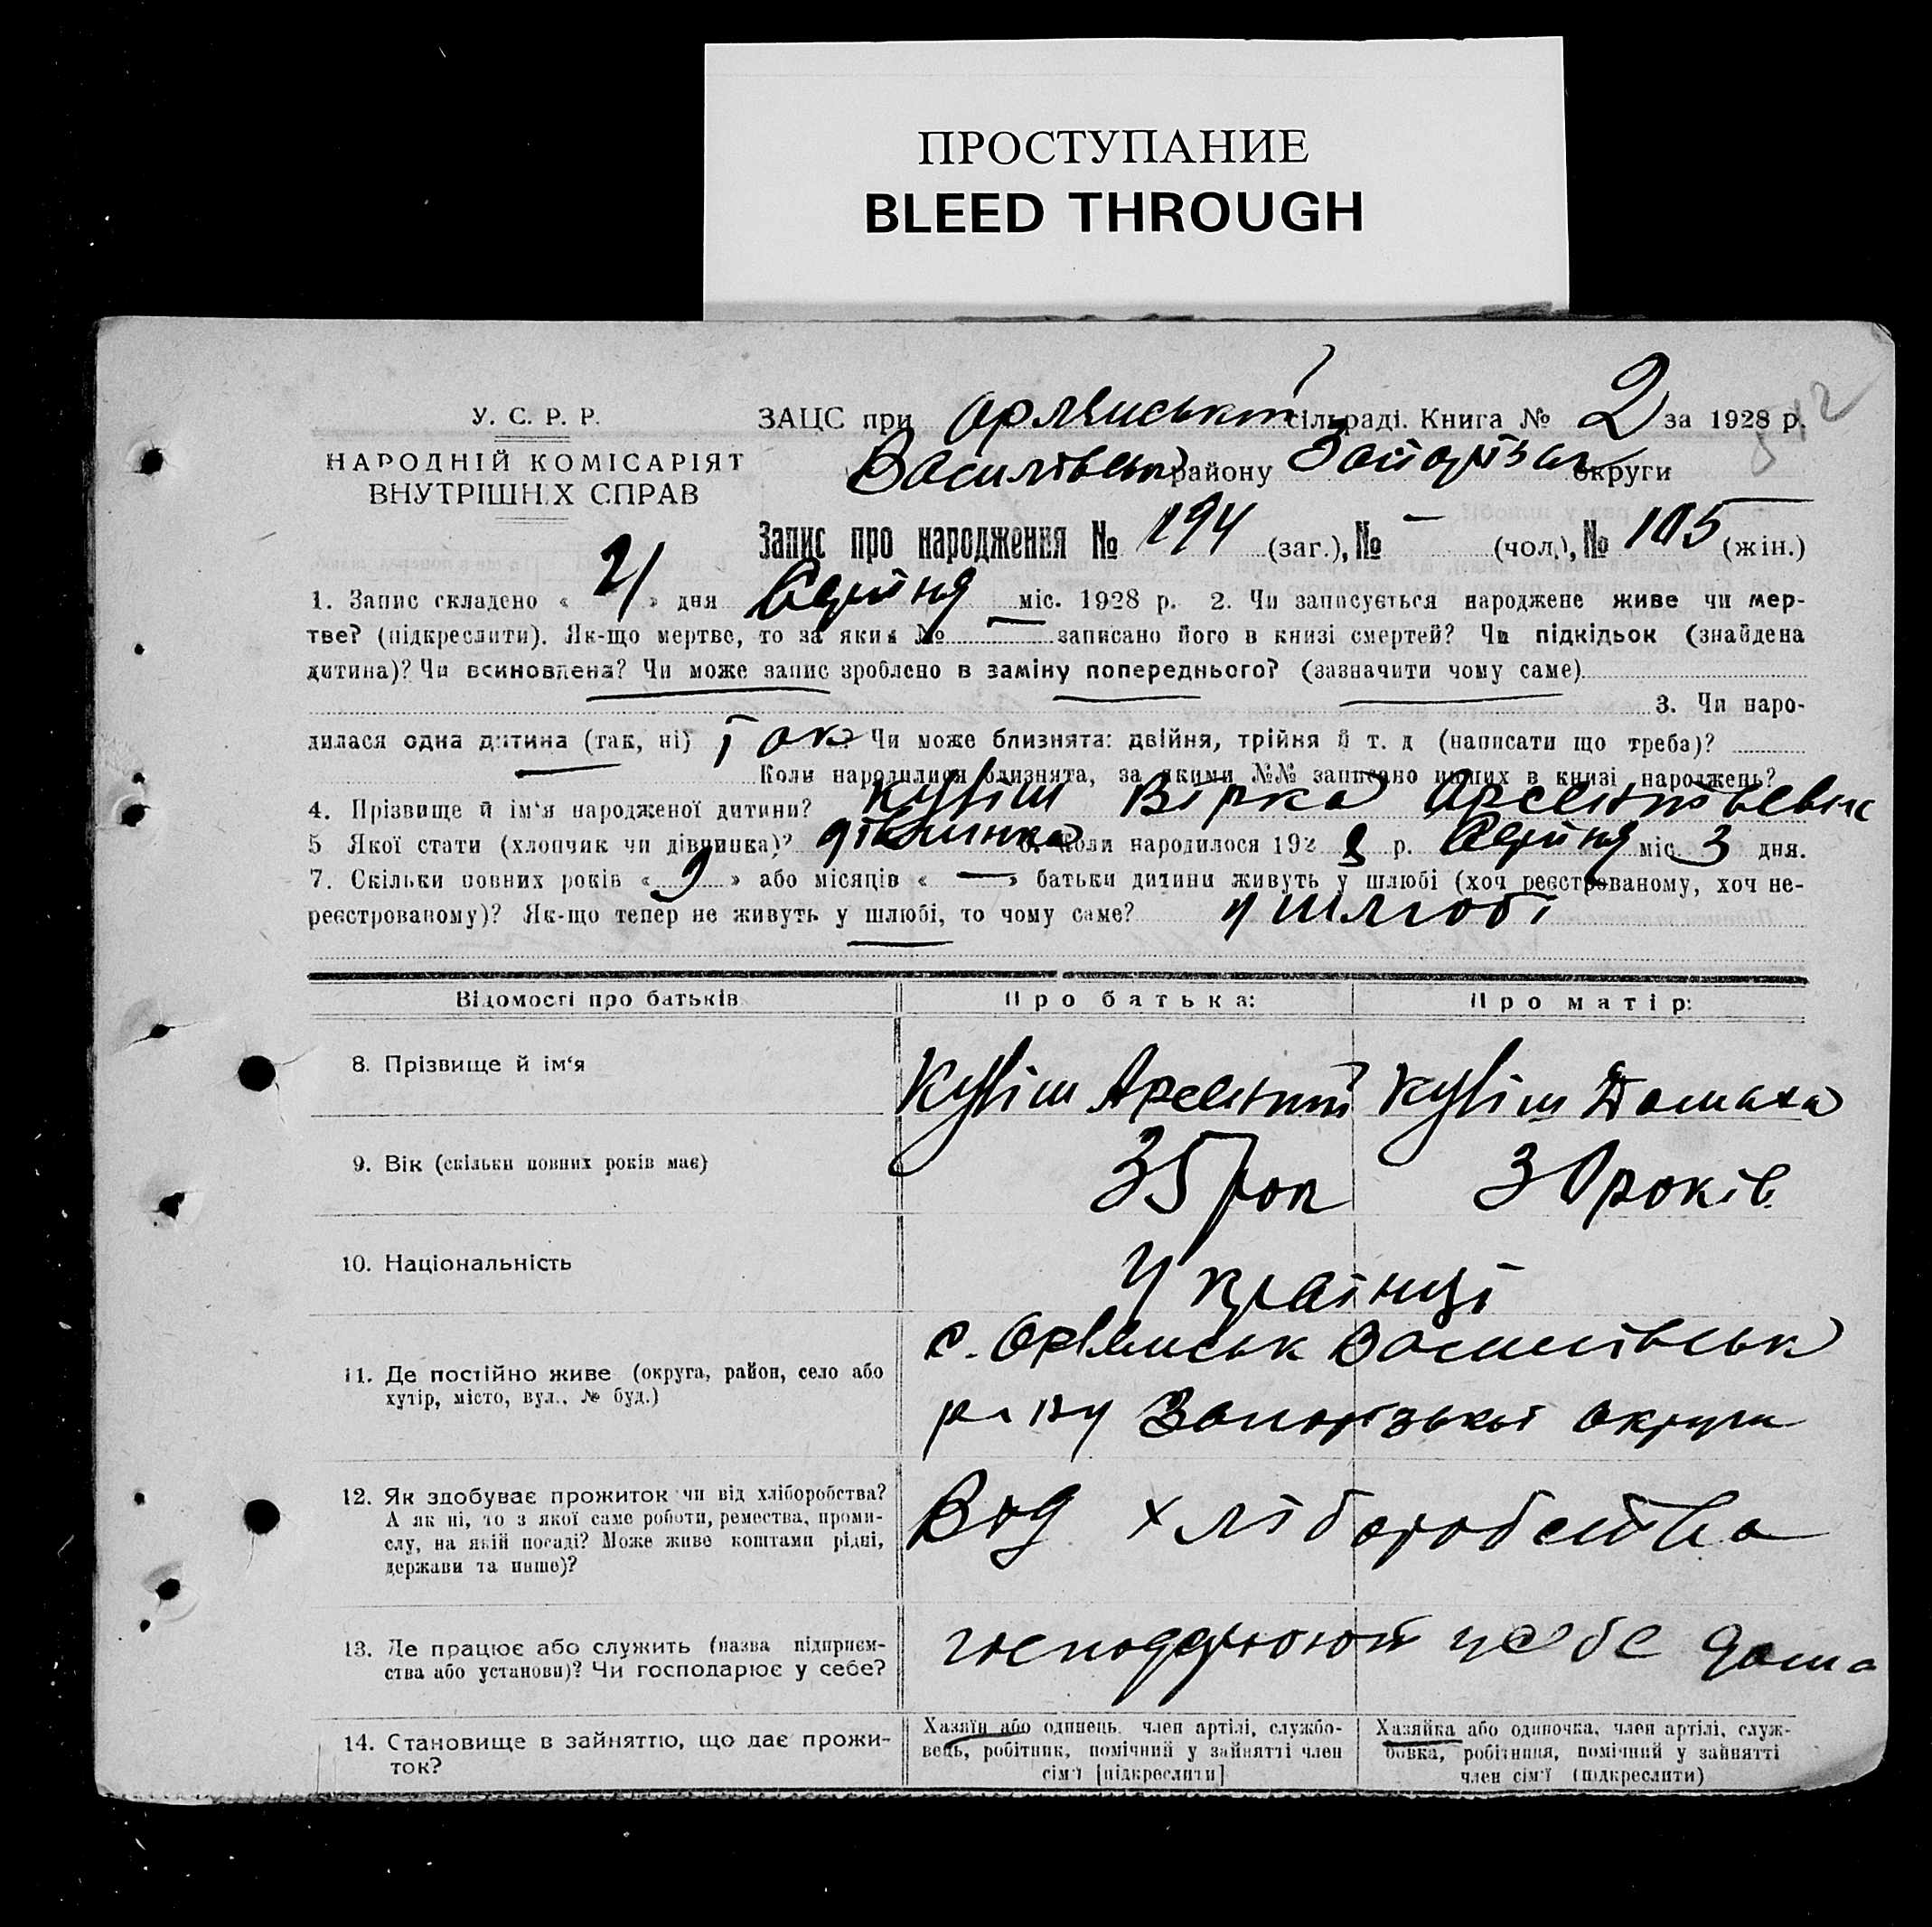 ПРОСТУПАНИЕ
BLEED THROUGH
У. С. Р. Р.
НАРОДНІЙ КОМІСАРІЯТ
ВНУТРІШНІХ СПРАВ
ЗАЦС при Орлянській сільраді. Книга № 2 за 1928 р.
Василівськ району Запоріз округи
Запис про народження № 194 (заг.), № — (чол.), № 105 (жін.)
1. Запис складено « 21 » дня Серпня міс. 1928 р. 2. Чи записується народжене живе чи мер-
тве? (підкреслити). Як-що мертве, то за яким № — записано його в книзі смертей? Чи підкідьок (знайдена
дитина)? Чи всиновлена? Чи може запис зроблено в заміну попереднього? (зазначити чому саме)
3. Чи наро-
дилася одна дитина (так, ні) Так Чи може близнята: двійня, трійня й т. д (написати що треба)?
Коли народилися близнята, за якими №№ записано инших в книзі народжень?
4. Прізвище й ім'я народженої дитини? Кувіш Вірка
5 Якої стати (хлопчик чи дівчинка)? дівчинка 6. Коли народилося 192 8 р. Серпня міс. 3 дня.
7. Скільки повних років « 9 » або місяців « — » батьки дитини живуть у шлюбі (хоч реєстрованому, хоч не-
реєстрованому)? Як-що тепер не живуть у шлюбі, то чому саме? у шлюбі
Відомості про батьків
Про батька:
Про матір:
8. Прізвище й ім'я
Кувіш Арсентий
Кувіш Домаха
9. Вік (скільки повних років має)
35 рок
30 років
10. Національність
Українці
11. Де постійно живе (округа, район, село або
хутір, місто, вул., № буд.)
с. Орлянськ Василівськ
р-ну Запорізької округи
12. Як здобуває прожиток чи від хліборобства?
А як ні, то з якої саме роботи, ремества, проми-
слу, на якій посаді? Може живе коштами рідні,
держави та инше)?
Від хліборобства
13. Де працює або служить (назва підприєм-
ства або установи)? Чи господарює у себе?
господарюють у себе дома
14. Становище в зайняттю, що дає прожи-
ток?
Хазяїн або одинець, член артілі, службо-
вець, робітник, помічний у зайнятті член
сім'ї [підкреслити]
Хазяйка або одиночка, член артілі, служ-
бовка, робітниця, помічний у зайнятті
член сім'ї (підкреслити)